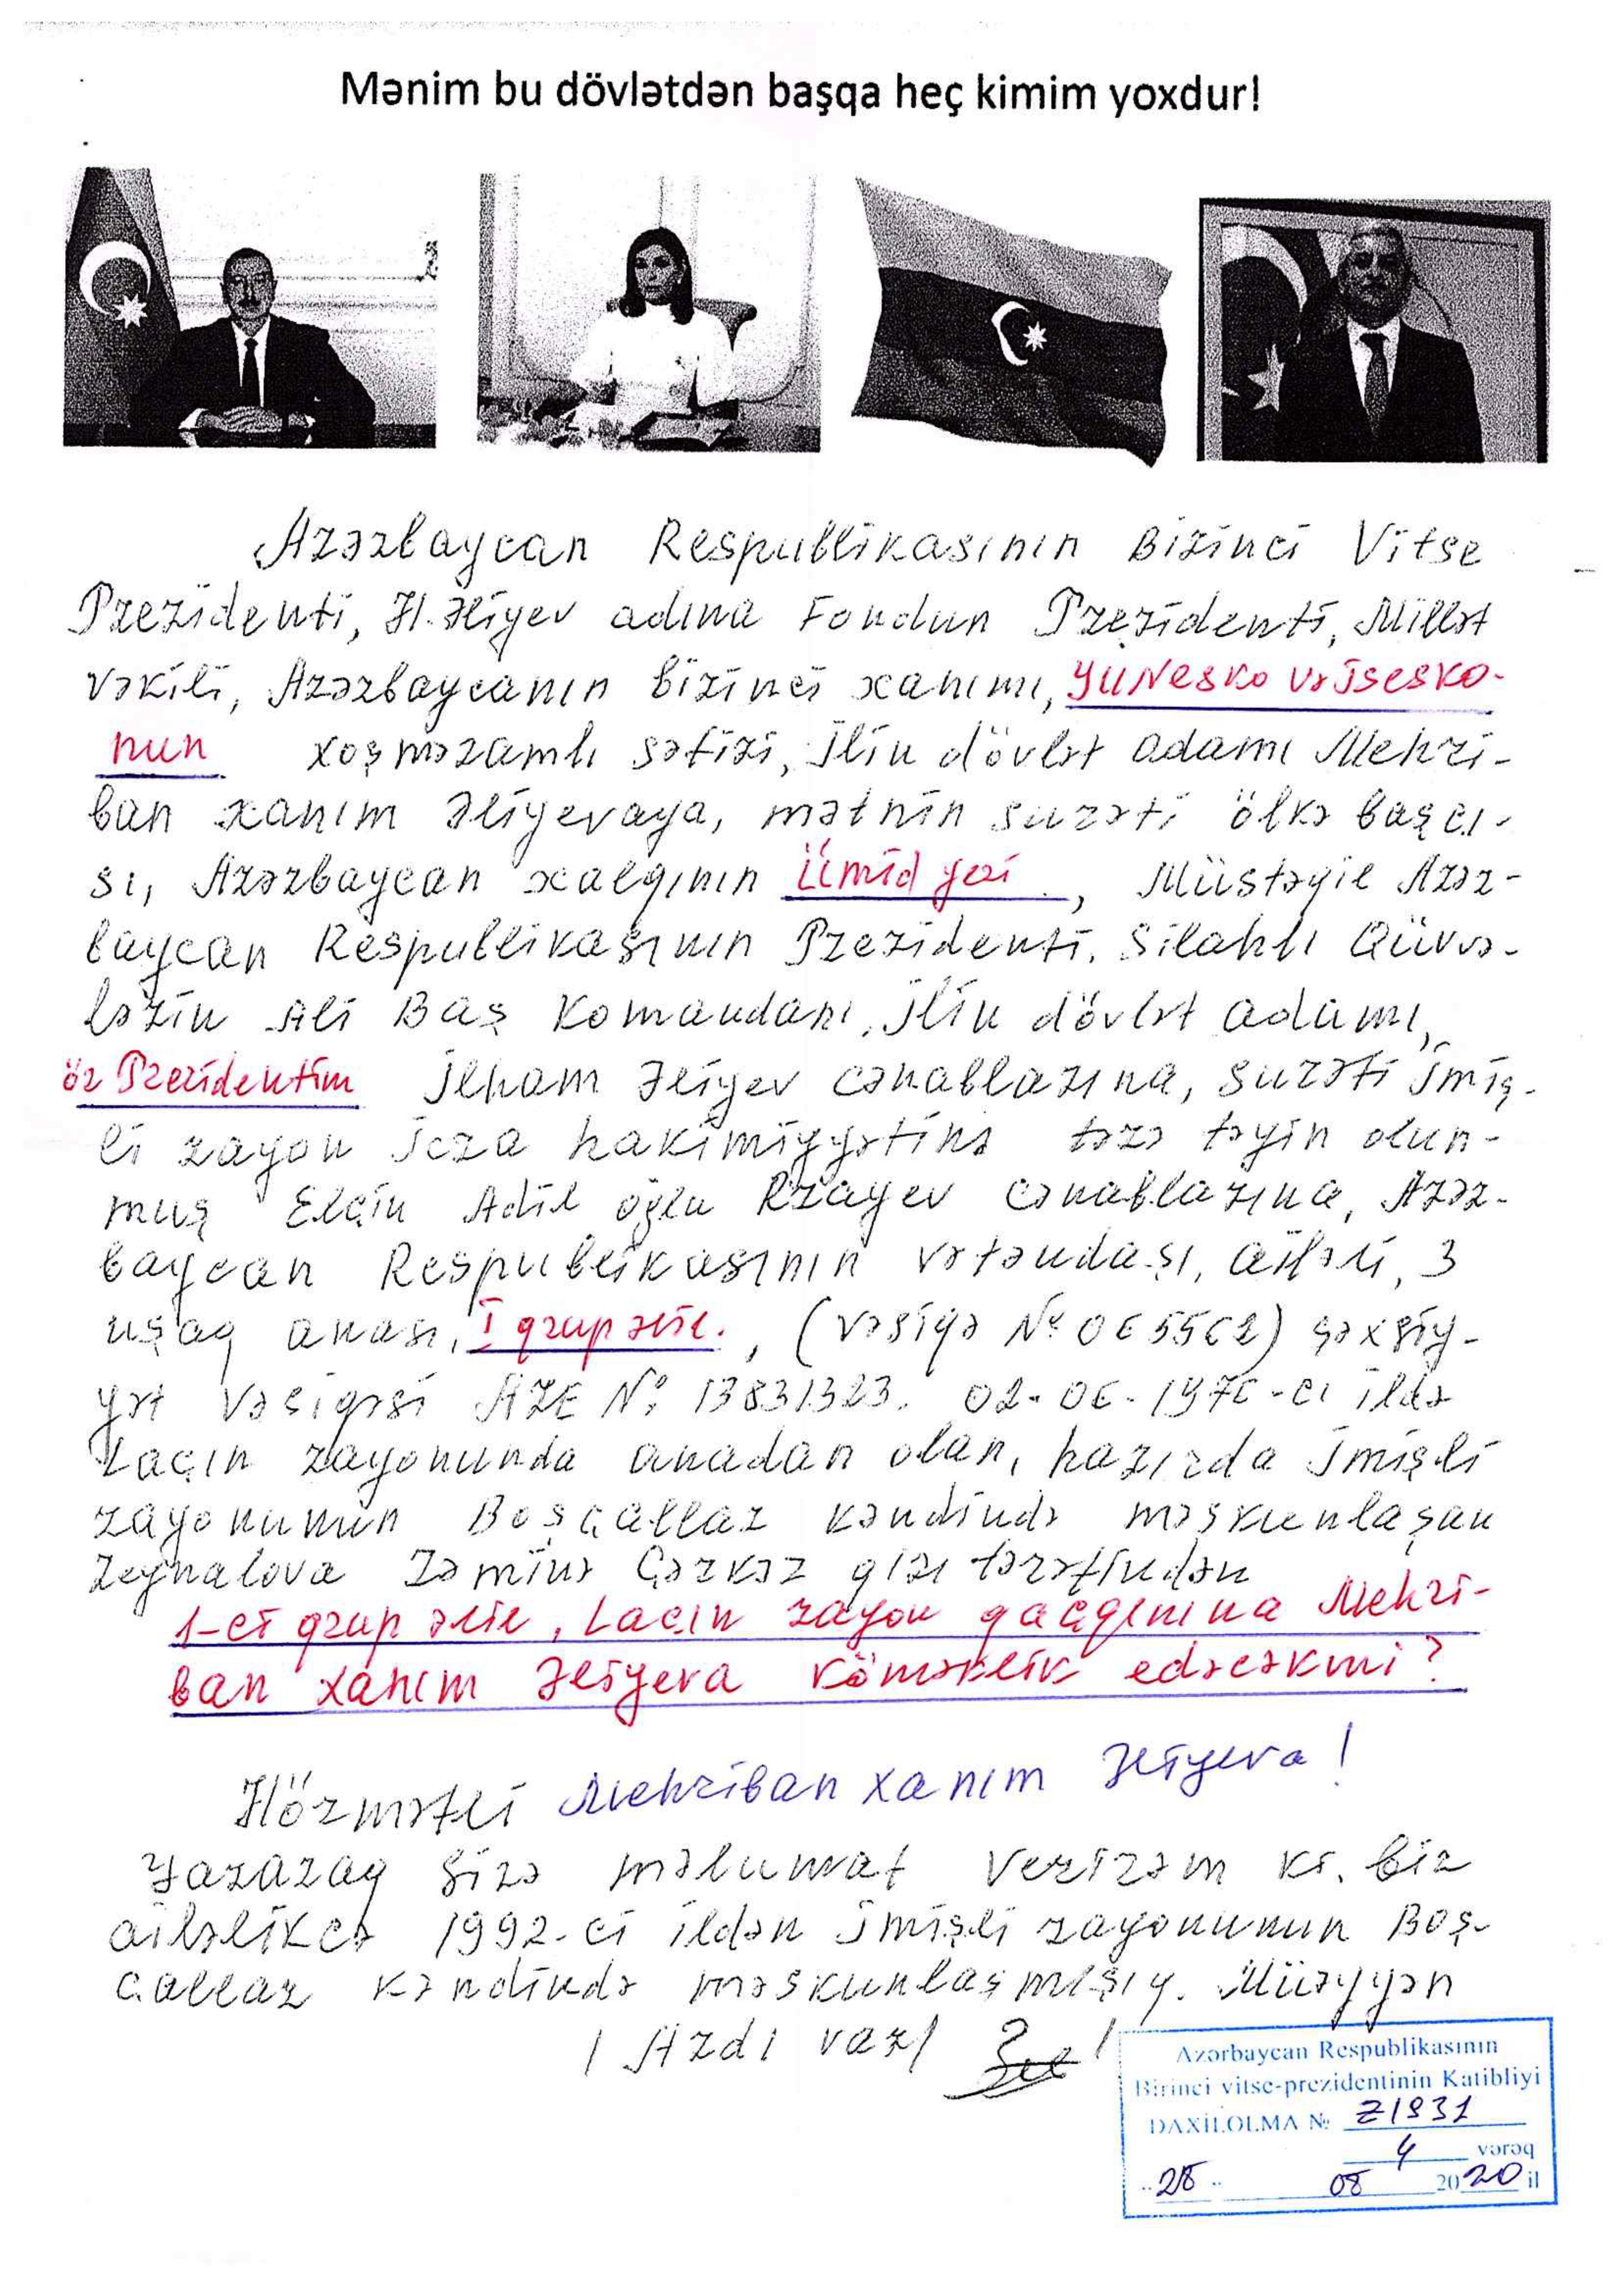 Mənim bu dövlətdən başqa heç kimim yoxdur!
Azərbaycan Respublikasının Birinci Vitse
Prezidenti, H. Əliyev adına Fondun Prezidenti, Millət
vəkili, Azərbaycanın birinci xanımı, YUNesko və İsesko-
nun xoşməramlı səfiri, İlin dövlət adamı Mehri-
ban xanım Əliyevaya, mətnin surəti ölkə başçı-
sı, Azərbaycan xalqının Ümid yeri, Müstəqil Azər-
baycan Respublikasının Prezidenti. Silahlı Qüvvə-
lərin Ali Baş Komandanı, İlin dövlət adamı,
öz Prezidentim İlham Əliyev cənablarına, surəti İmiş-
li rayon İcra hakimiyyətinə təzə təyin olun-
muş Elçin Adil oğlu Rzayev cənablarına, Azər-
baycan Respublikasının vətəndaşı, ailəli, 3
uşaq anası, I qrup əlil., (vəsiqə № 065562) şəxsiy-
yət vəsiqəsi AZE № 13831323. 02-06-1976-cı ildə
Laçın rayonunda anadan olan, hazırda İmişli
rayonunun Boşçallar kəndində məskunlaşan
Zeynalova Zəminə Çərkəz qızı tərəfindən
1-ci qrup əlil, Laçın rayon qaçqınına Mehri-
ban xanım Əliyeva köməklik edəcəkmi?
Hörmətli Mehriban xanım Əliyeva!
Yazaraq Sizə məlumat verirəm ki. biz
ailəlikcə 1992-ci ildən İmişli rayonunun Boş-
çallar kəndində məskunlaşmışıq. Müəyyən
/ Ardı var /
Azərbaycan Respublikasının
Birinci vitse-prezidentinin Katibliyi
DAXİLOLMA № Z1931
4 vərəq
"28" 08 2020 il